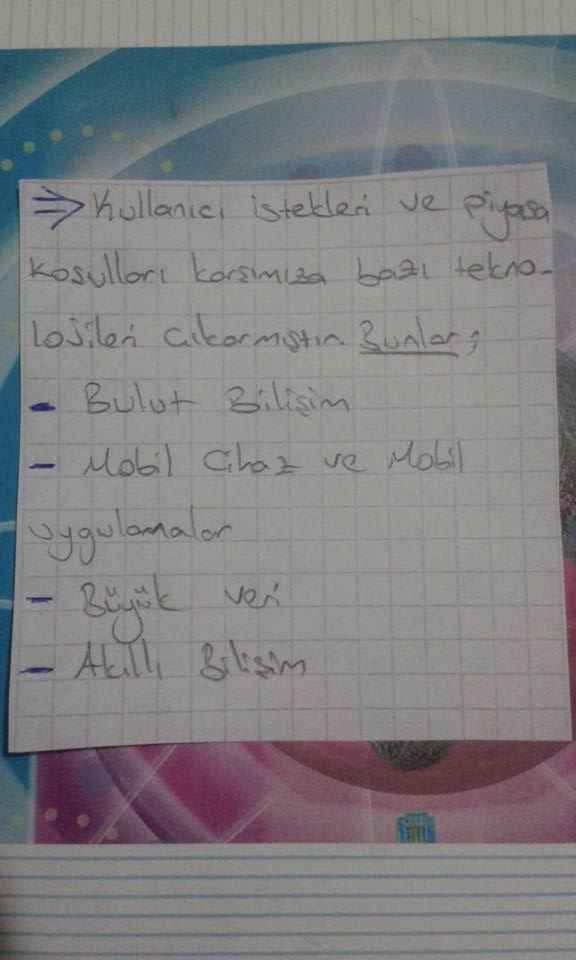 ⇒ Kullanıcı istekleri ve piyasa
koşulları karşımıza bazı tekno-
lojileri çıkarmıştır. Bunlar;
- Bulut Bilişim
- Mobil Cihaz ve Mobil
uygulamalar
- Büyük veri
- Akıllı Bilişim